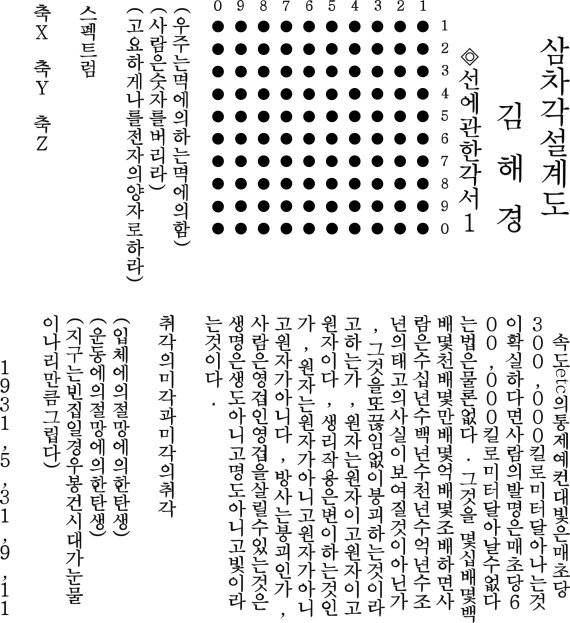 삼차각설계도
김 해 경
◈선에관한각서 1
1 2 3 4 5 6 7 8 9 0
1 ● ● ● ● ● ● ● ● ● ●
2 ● ● ● ● ● ● ● ● ● ●
3 ● ● ● ● ● ● ● ● ● ●
4 ● ● ● ● ● ● ● ● ● ●
5 ● ● ● ● ● ● ● ● ● ●
6 ● ● ● ● ● ● ● ● ● ●
7 ● ● ● ● ● ● ● ● ● ●
8 ● ● ● ● ● ● ● ● ● ●
9 ● ● ● ● ● ● ● ● ● ●
0 ● ● ● ● ● ● ● ● ● ●
(우주는멱에의하는멱에의함)
(사람은숫자를버리라)
(고요하게나를전자의양자로하라)
스펙트럼
축X 축Y 축Z
속도etc의통제예컨대빛은매초당
300,000킬로미터달아나는것
이확실하다면사람의발명은매초당6
00,000킬로미터달아날수없다
는법은물론없다. 그것을 몇십배몇백
배몇천배몇만배몇억배몇조배하면사
람은수십년수백년수천년수억년수조
년의태고의사실이보여질것이아닌가
,그것을또끊임없이붕괴하는것이라
고하는가,원자는원자이고원자이고
원자이다,생리작용은변이하는것인
가,원자는원자가아니고원자가아니
고원자가아니다,방사는붕괴인가,
사람은영겁인영겁을살릴수있는것은
생명은생도아니고명도아니고빛이라
는것이다.
취각의미각과미각의취각
(입체에의절망에의한탄생)
(운동에의절망에의한탄생)
(지구는빈집일경우봉건시대가눈물
이나리만큼그립다)
1931,5,31,9,11